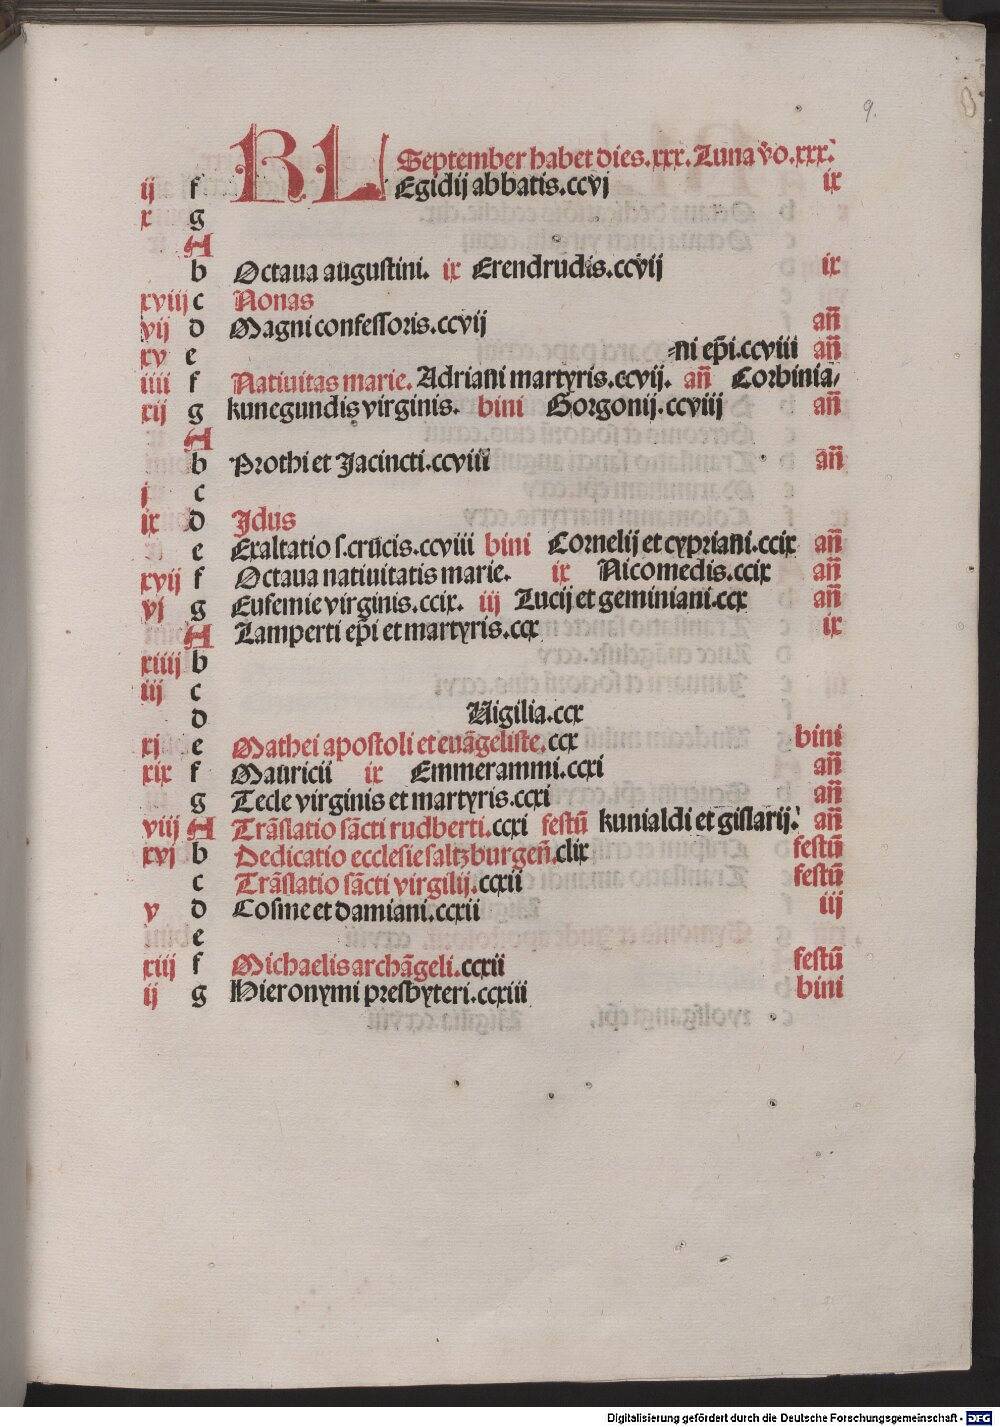 9.
KL September habet dies.xxx.Luna v̄o.xxx.
ij f Egidij abbatis.ccvj ix
x g
A
b Octaua augustini. ix Erendrudis.ccvij ix
xviij c Nonas
vij d Magni confessoris.ccvij añ
xv e ni ep̄i.ccviii añ
iiii f Natiuitas marie. Adriani martyris.ccvij. añ Corbinia
xij g kunegundis virginis. bini Gorgonij.ccviij añ
A
b Prothi et Jacincti.ccviii añ
j c
ix d Jdus
e Exaltatio s.crucis.ccviii bini Cornelij et cypriani.ccix añ
xvij f Octaua natiuitatis marie. ix Nicomedis.ccix añ
vj g Eufemie virginis.ccix. iij Lucij et geminiani.ccx añ
A Lamperti ep̄i et martyris.ccx ix
xiiij b
iij c
d Vigilia.ccx
xj e Mathei apostoli et euãgeliste.ccx bini
xix f Mauricii ix Emmerammi.ccxi añ
g Tecle virginis et martyris.ccxi añ
viij A Trãslatio sãcti rudberti.ccxi festū kunialdi et gislarij. añ
xvj b Dedicatio ecclesie saltzburgeñ.clix festū
c Trãslatio sãcti virgilij.ccxii festū
v d Cosme et damiani.ccxii iij
e
xiij f Michaelis archãgeli.ccxii festū
ij g Hieronymi presbyteri.ccxiii bini
Digitalisierung gefördert durch die Deutsche Forschungsgemeinschaft - DFG